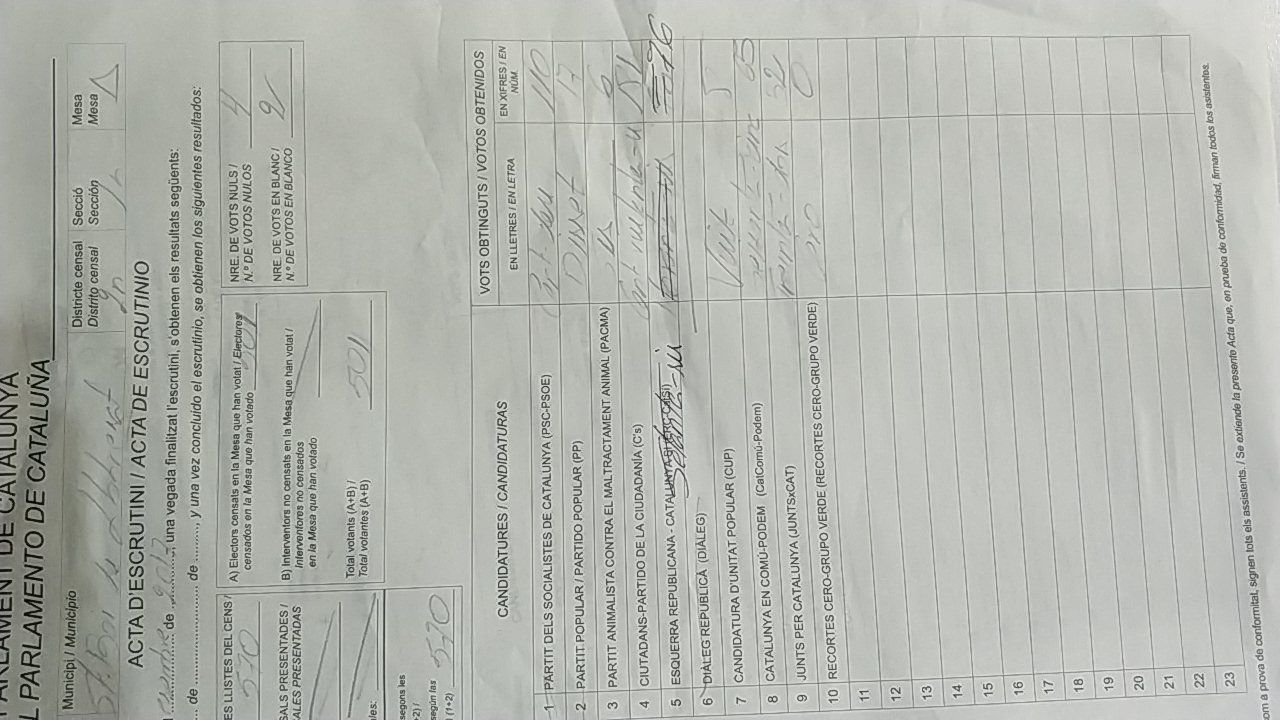 PARLAMENT DE CATALUNYA
PARLAMENTO DE CATALUÑA
Municipi / Municipio
St. Boi de Llobregat
Districte censal
Distrito censal
2n
Secció
Sección
Mesa
Mesa
A
ACTA D'ESCRUTINI / ACTA DE ESCRUTINIO
de 2017, una vegada finalitzat l'escrutini, s'obtenen els resultats següents:
de .......... de .........., y una vez concluido el escrutinio, se obtienen los siguientes resultados:
ES LLISTES DEL CENS /
570
SALS PRESENTADES /
ALES PRESENTADAS
ales:
segons les
+2) /
según las
(1+2)
570
A) Electors censats en la Mesa que han votat / Electores
censados en la Mesa que han votado 501
B) Interventors no censats en la Mesa que han votat /
Interventores no censados
en la Mesa que han votado
Total votants (A+B) /
Total votantes (A+B)
501
NRE. DE VOTS NULS /
N.º DE VOTOS NULOS
4
NRE. DE VOTS EN BLANC /
N.º DE VOTOS EN BLANCO
2
CANDIDATURES / CANDIDATURAS
VOTS OBTINGUTS / VOTOS OBTENIDOS
EN LLETRES / EN LETRA
EN XIFRES / EN NÚM.
1 PARTIT DELS SOCIALISTES DE CATALUNYA (PSC-PSOE) 110
2 PARTIT POPULAR / PARTIDO POPULAR (PP) Disset 17
3 PARTIT ANIMALISTA CONTRA EL MALTRACTAMENT ANIMAL (PACMA) sis 6
4 CIUTADANS-PARTIDO DE LA CIUDADANÍA (C's)
5 ESQUERRA REPUBLICANA - CATALUNYA SÍ (ERC-CatSí) 76
6 DIÀLEG REPUBLICÀ (DIÀLEG)
7 CANDIDATURA D'UNITAT POPULAR (CUP) Vuit
8 CATALUNYA EN COMÚ-PODEM (CatComú-Podem) 65
9 JUNTS PER CATALUNYA (JUNTSxCAT) 32
10 RECORTES CERO-GRUPO VERDE (RECORTES CERO-GRUPO VERDE) zero 0
11
12
13
14
15
16
17
18
19
20
21
22
23
om a prova de conformitat, signen tots els assistents. / Se extiende la presente Acta que, en prueba de conformidad, firman todos los asistentes.